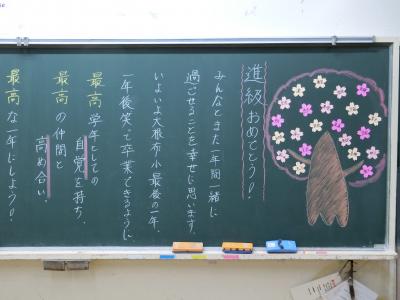 進級おめでとう!
みんなとまた一年間一緒に
過ごせることを幸せに思います。
いよいよ大根布小最後の一年、
一年後笑って卒業できるように
最高学年としての
自覚を持ち、
最高の仲間と
高め合い、
最高な一年にしよう!!